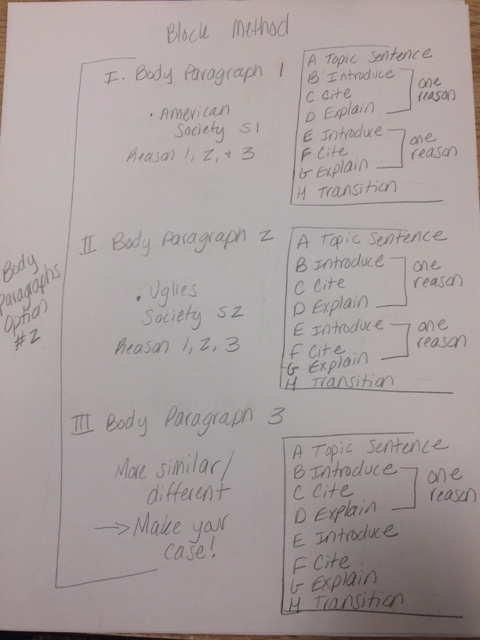 Block Method
Body
Paragraphs
Option
#2
I. Body Paragraph 1
• American
Society S1
Reason 1, 2, + 3
A Topic Sentence
B Introduce
C Cite
D Explain
one
reason
E Introduce
F Cite
G Explain
one
reason
H Transition
II Body Paragraph 2
• Uglies
Society S2
Reason 1, 2, 3
A Topic Sentence
B Introduce
C Cite
D Explain
one
reason
E Introduce
F Cite
G Explain
one
reason
H Transition
III Body Paragraph 3
More similar/
different
→ Make your
case!
A Topic Sentence
B Introduce
C Cite
D Explain
one
reason
E Introduce
F Cite
G Explain
H Transition